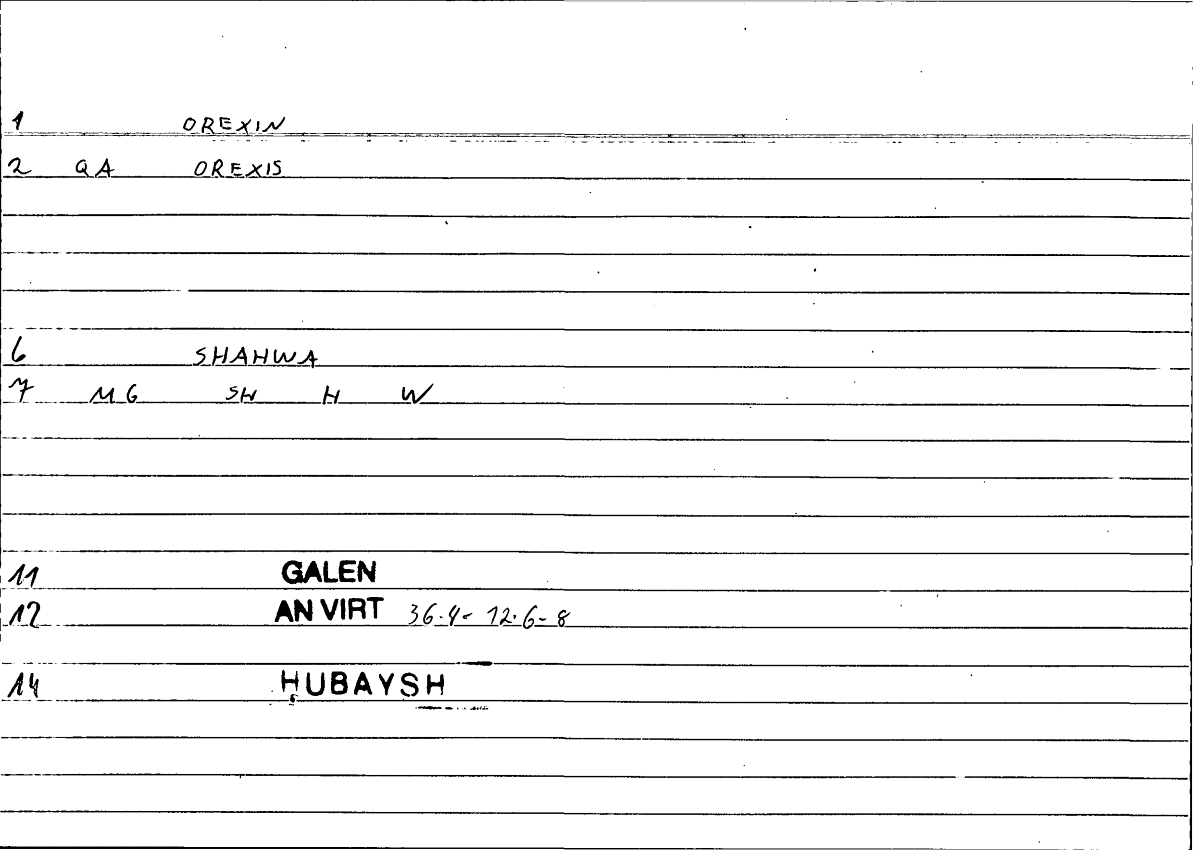 1 OREXIN
2 QA OREXIS
6 SHAHWA
7 MG SH H W
11 GALEN
12 AN VIRT 36.4- 12.6-8
14 ḤUBAYSH